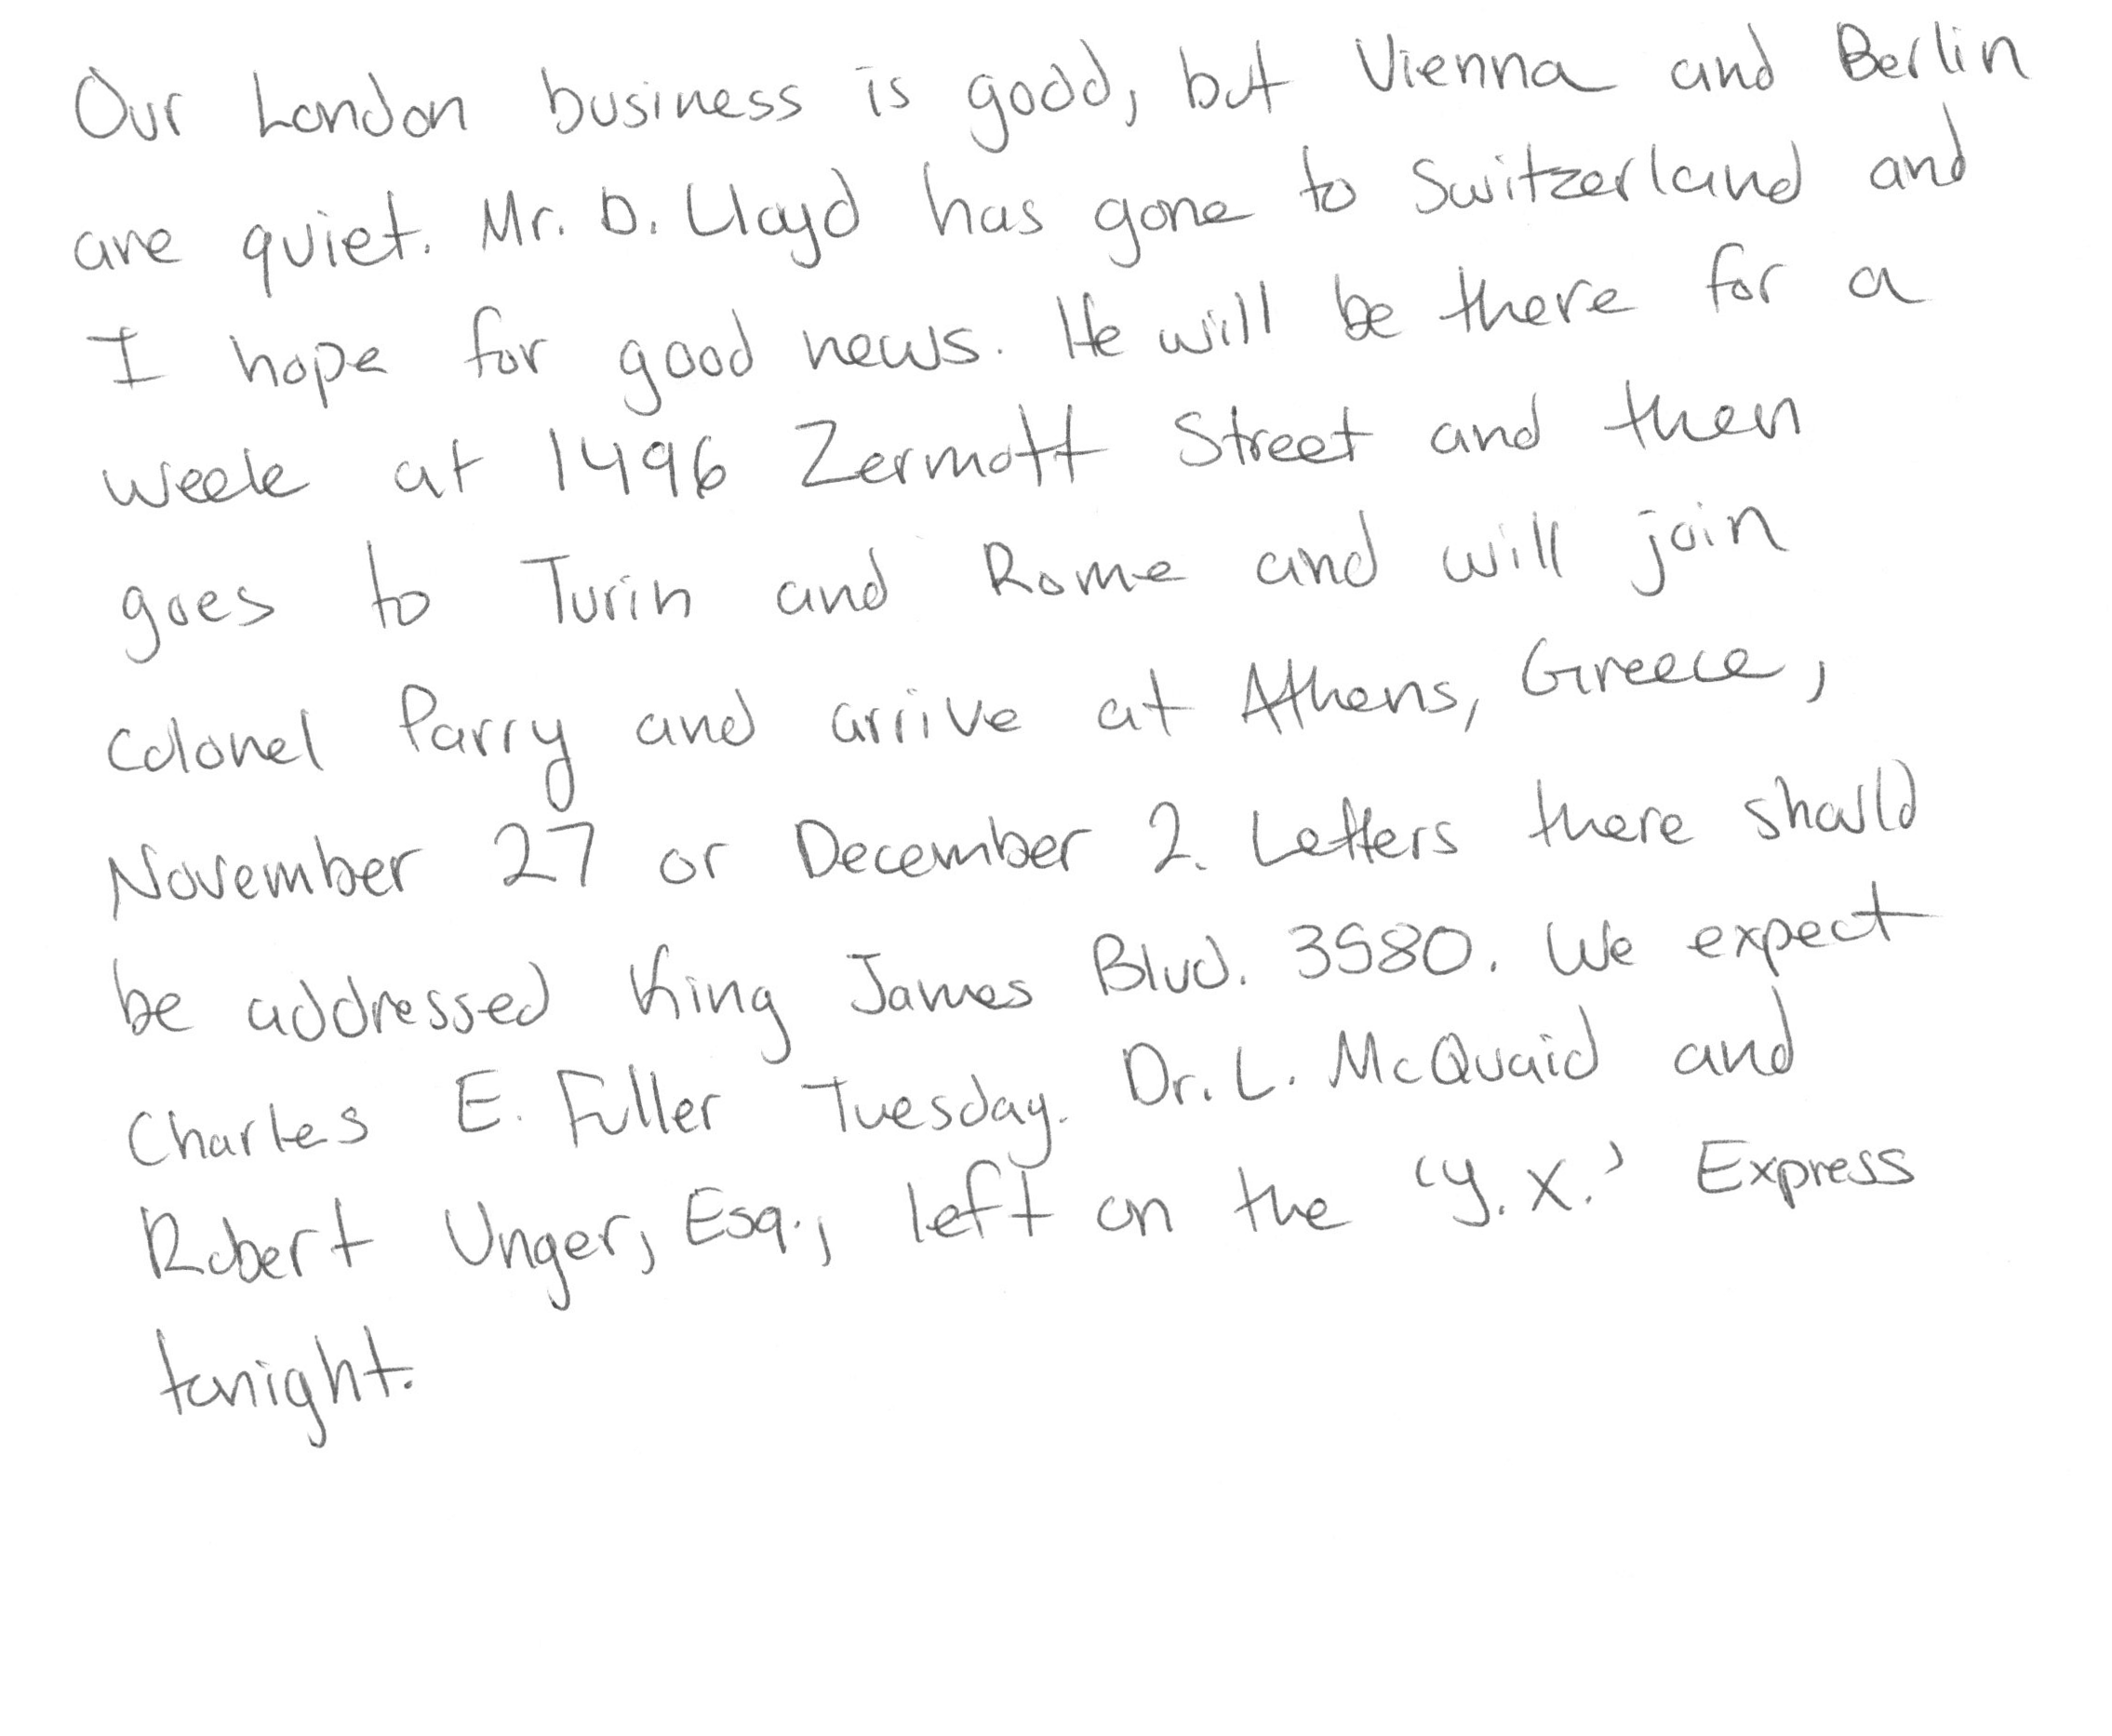 Our London business is good, but Vienna and Berlin
are quiet. Mr. D. Lloyd has gone to Switzerland and
I hope for good news. He will be there for a
week at 1496 Zermott Street and then
goes to Turin and Rome and will join
Colonel Parry and arrive at Athens, Greece,
November 27 or December 2. Letters there should
be addressed King James Blvd. 3580. We expect
Charles E. Fuller Tuesday. Dr. L. McQuaid and
Robert Unger, Esq., left on the 'Y.X.' Express
tonight.